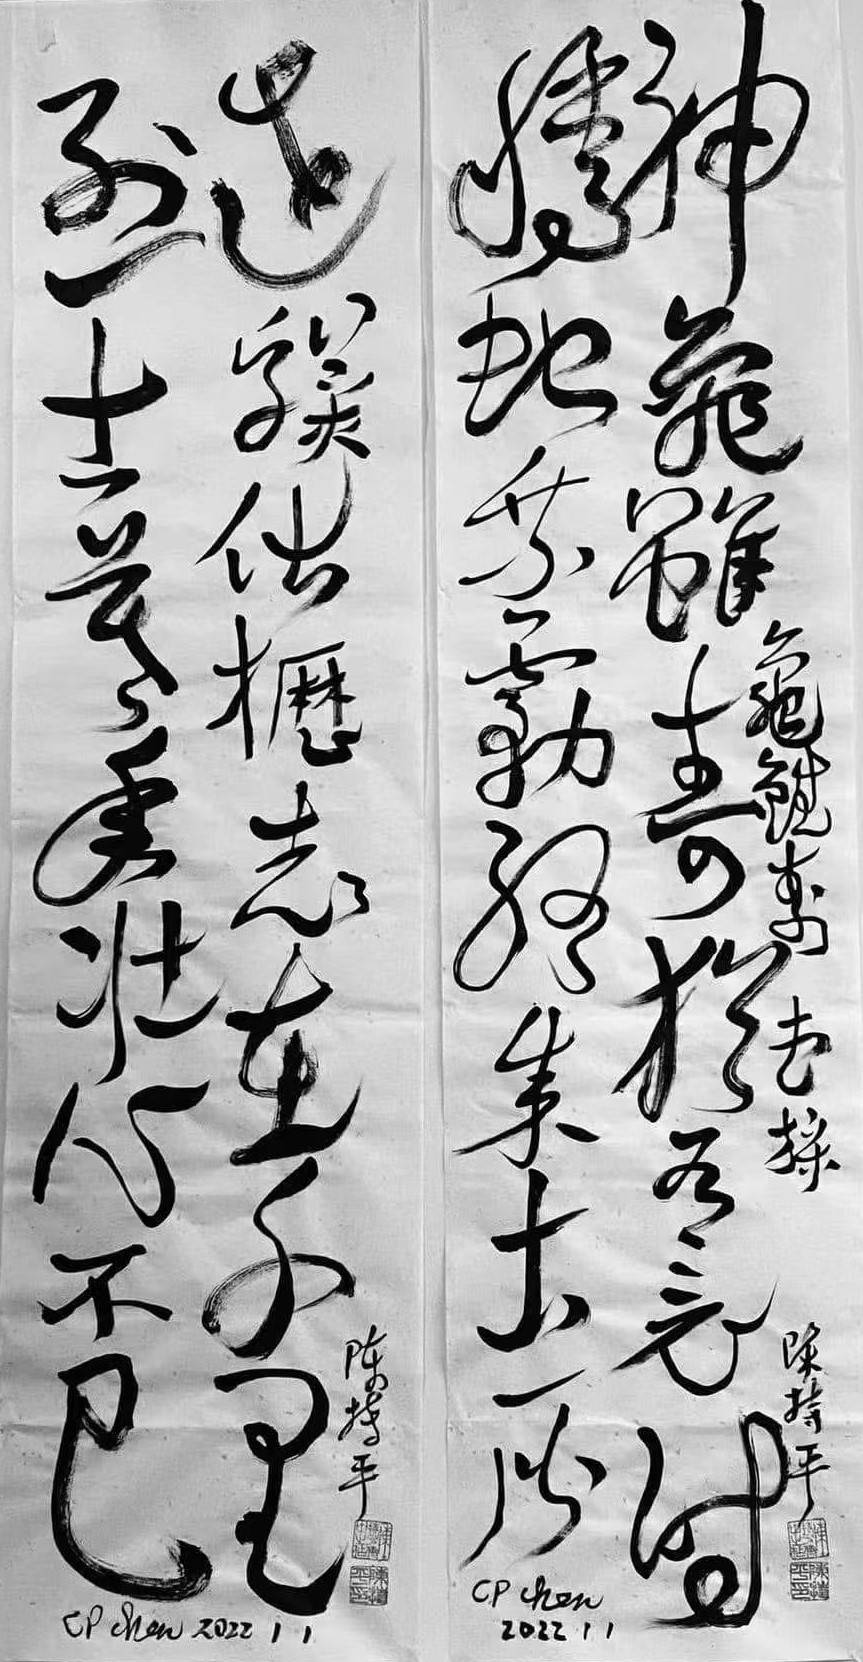 龜雖壽 曹操
神龜雖壽猶有竟時
騰蛇乘霧終成土灰
陳持平
CP Chen
2022 1 1
老驥伏櫪志在千里
烈士暮年壯心不已
陳持平
CP Chen 2022 1 1